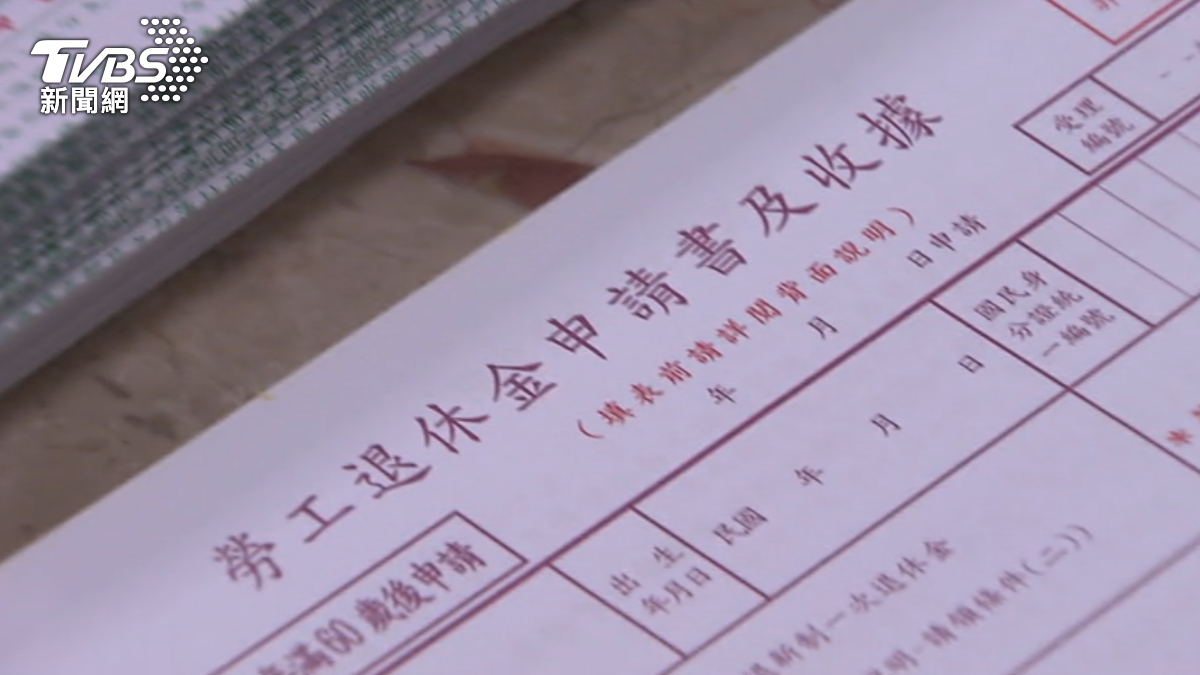 TVBS
新聞網
勞工退休金申請書及收據
(填表前請詳閱背面說明)
年 月 日申請
受理
編號
滿60歲後申請
出生
年月日
民國 年 月 日
國民身
分證統
一編號
新制一次退休金
明-請領條件(二))